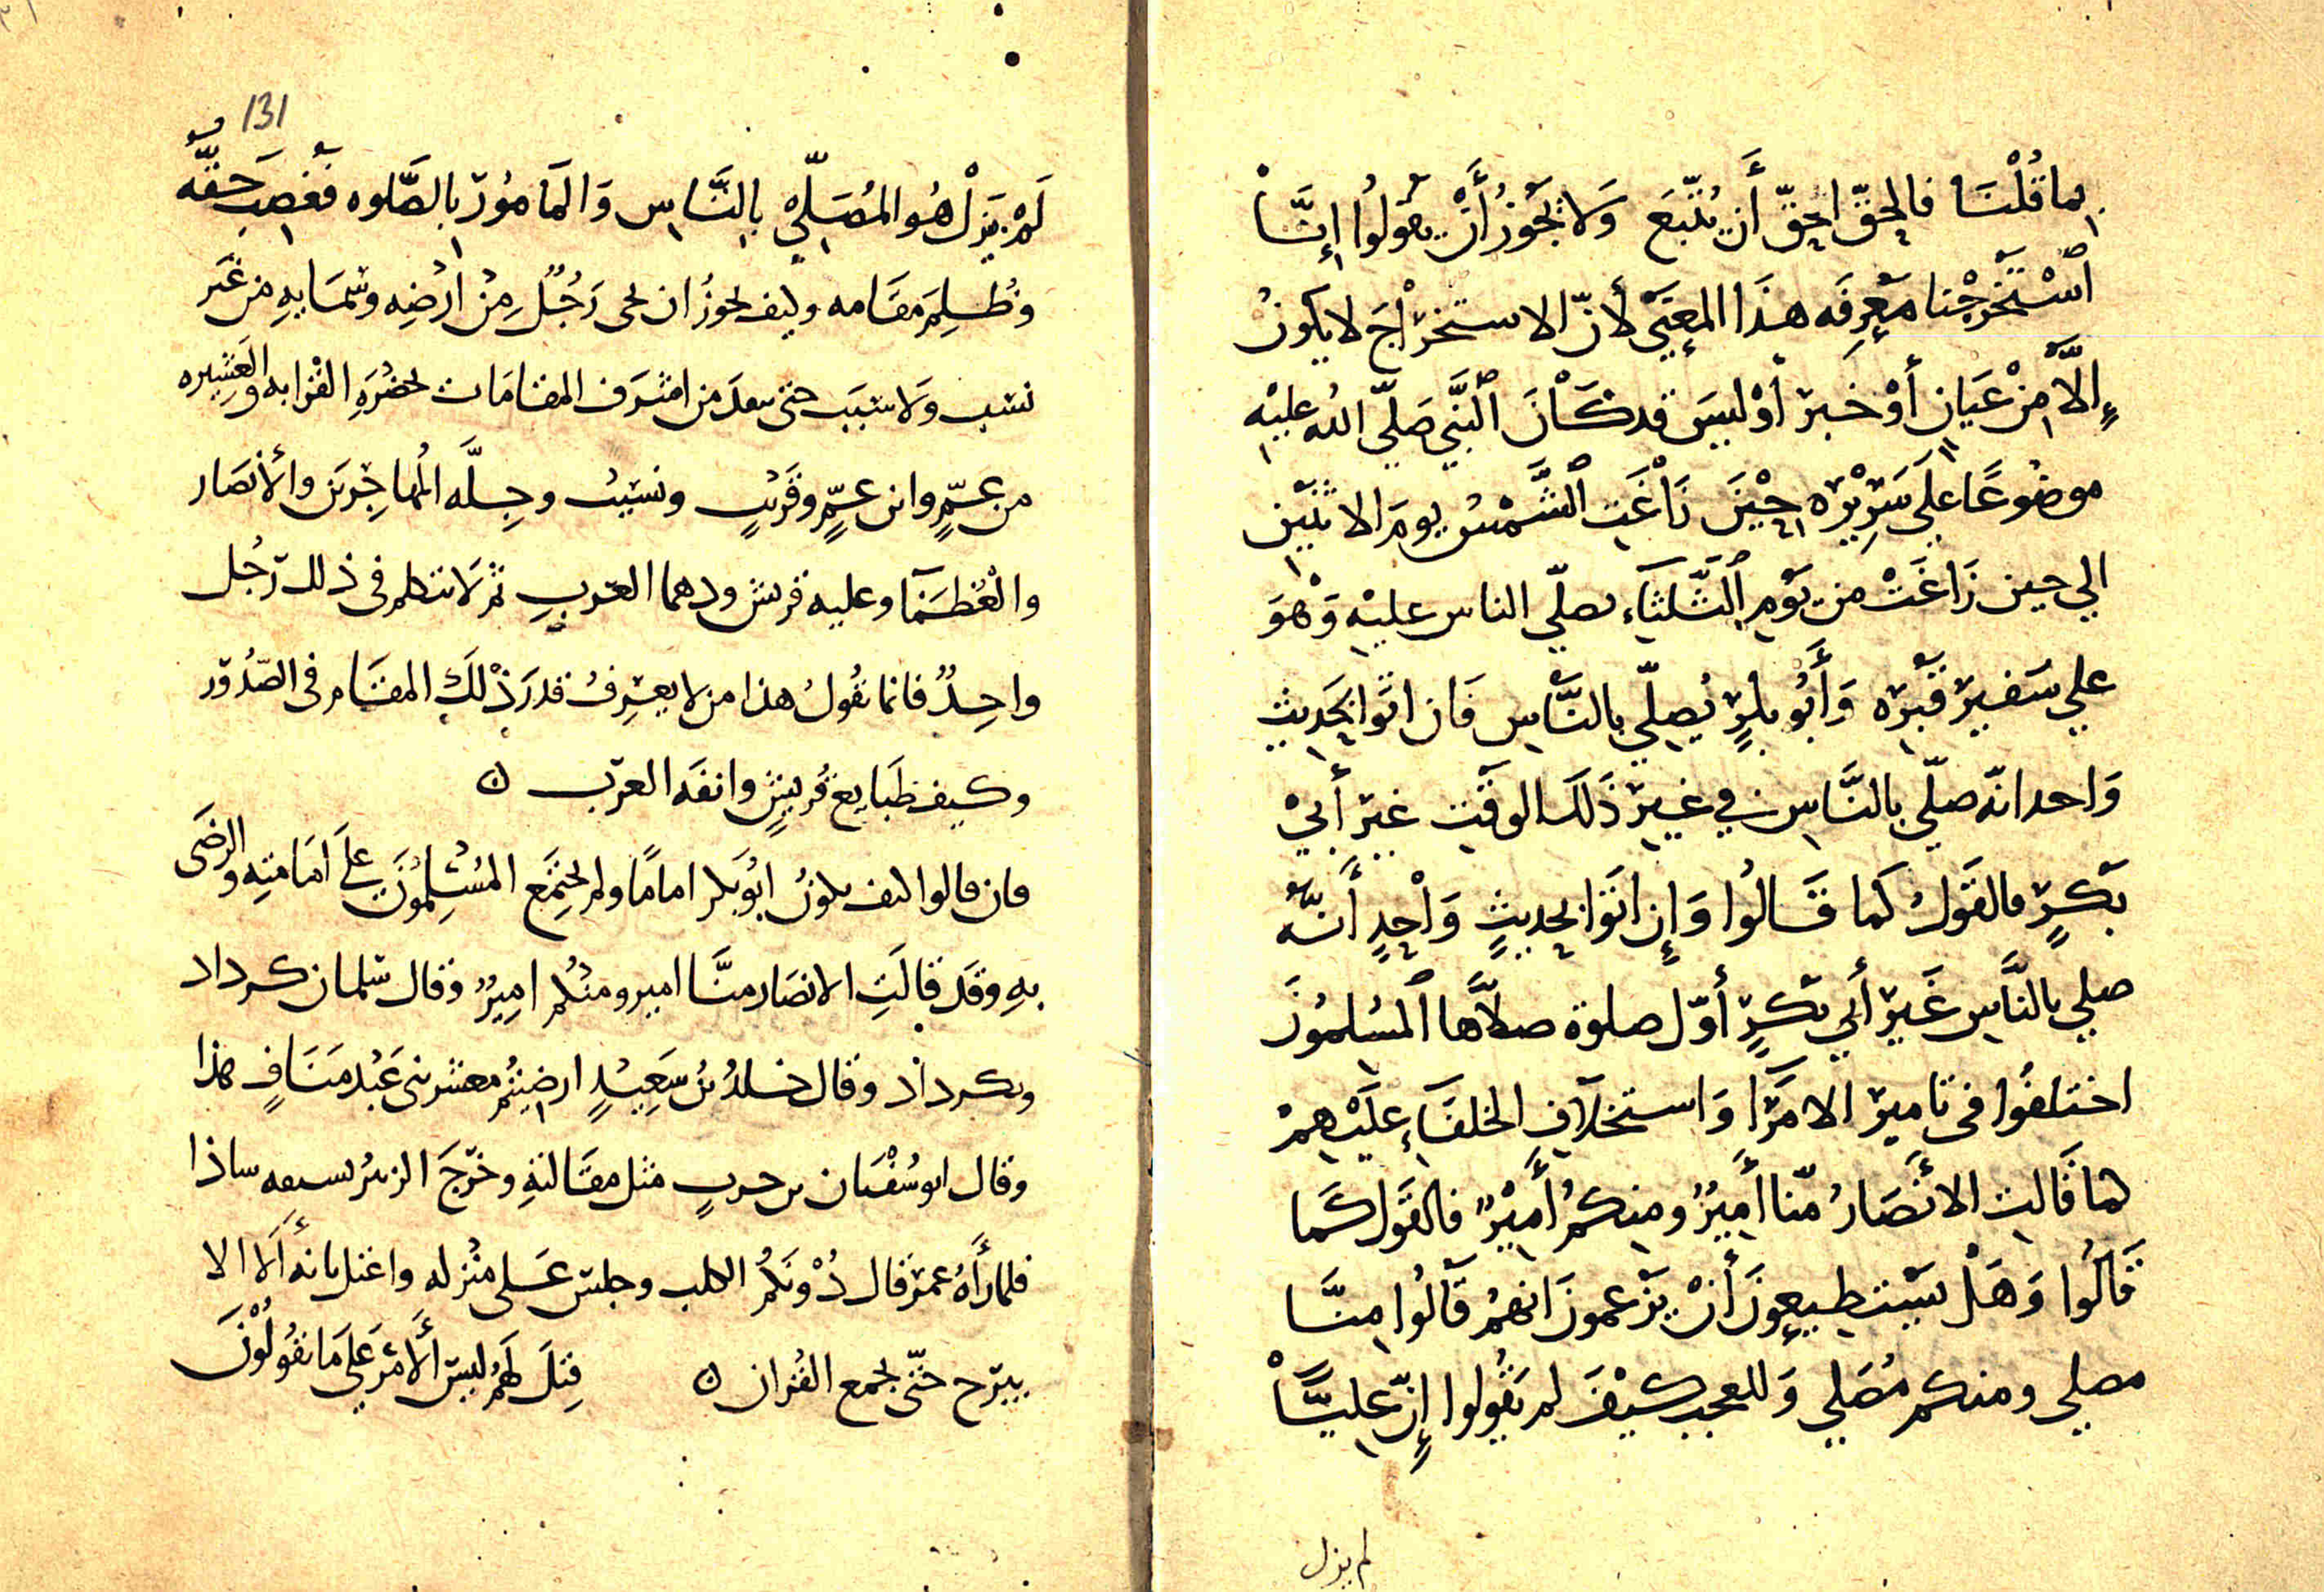 بما قُلْنَا فالحقّ احقّ أن يُتّبعَ وَلا يَجُوزُ أَنْ يقولُوا إِنَّا
اسْتَخْرَجْنا مَعْرِفَه هذَا المعنَى لأنّ الاستخرْاجَ لا يكونُ
إِلَّا مِنْ عَيَانٍ أوْ خَبرٍ أوْ ليسَ قد كَانَ النَّبي صَلّى اللهُ عليْهِ
موضُوعًا على سَرِيْرِه حِيْنَ زَاغَتِ الشَّمْسُ يومَ الاثنَيْن
الي حين زَاغَتْ من يَوْمِ الثَّلثَاءِ يصلّي الناس عليْهِ وَهْوَ
علي شفير قَبْرِه وَأَبُو بكرٍ يُصلّي بالنَّاسِ فَان اتَوا بحَديثٍ
وَاحد انّه صلّي بالنَّاسِ في غيرِ ذَلكَ الوقْتِ غيرُ أَبيْ
بَكرٍ فالقَولُ كما قَالُوا وَإِن اتَوا بحديثٍ وَاْحِدٍ أَنَّهُ
صلي بالنَّاسِ غَيرُ أَبي بكرٍ أوّل صلوة صلاَّها المسُلموُنَ
اختلفُوا في تاميرِ الامَرَا وَاستخلاَفِ الخلفَاءِ عليْهِمْ
كما قَالتِ الأنْصَارُ منّا أَمِيرٌ ومِنكمُ أَمِيْرٌ فالقَول كَما
قَالُوا وَهَلْ يَسْتطيعِونَ أَنْ يَزْعمونَ انهمُ قَالُوا مِنَّا
مصلي ومنكم مُصَلي وَللعجب كَيْفَ لم يَقُولوا إِنّ عليَّاْ
لم يزل
131
لَمْ يَزلْ هُو المُصَلّيْ بالنَّاسِ وَالمَامُورُ بالصَّلوه فَغصِبَ حَقَّه
وظُلِمَ مقَامه وكيف يجوزُ ان يجى رَجُلٌ مِنْ ارْضِه وسَمَايِهِ من غَير
نسَب وَلا سَبَب حتى يبعدَ من اشرَف المقامَات بحضْرَهِ القْرابه والعَشِيره
من عمٍّ وابن عمٍّ وقَريْبٍ ونسَيْبٍ وجِلَّه المُهاجِرِيَن والأنصَار
والْعُظمَآ وعليه قريش ودهما العَربِ ثمّ لَا يتكلم في ذلك رَجُل
واحِدٌ فانما يقُولُ هذا من لا يعْرِفُ قدرَ ذْلكَ المقَام في الصّدُوْر
وكيف طَبَايع قُريشٍ وانفَه العرَب ن
فان قالوا كيف يكونُ ابُو بَكر امامًا ولم يجتَمعِ المُسْلِمُونَ علَى امَامَتِه والرضَى
بهِ وقَد قالَتِ الانصَار منَّا امير ومنْكُم امِيرٌ وقال سَلمان كرداد
وبكرداد وقال خلدُ بْنُ سَعِيْدٍ ارضِيْتُم معشر بني عَبْد مَنَافٍ بهذا
وقال ابو سُفْيَان بن حربٍ مثل مقَالتهِ وخرَجَ الزبيُر بسيفه ساذا
فلما رأَهُ عمرُ قال دُوْنَكُمُ الكلب وجلسَ عَلى منْزله واعتل بانهُ ألَا الا
يبرَح حتّى يجمع القُران ن قِيْلَ لَهُمُ ليس ألأَمْر عَلَى مَا تَقُولُوْنَ